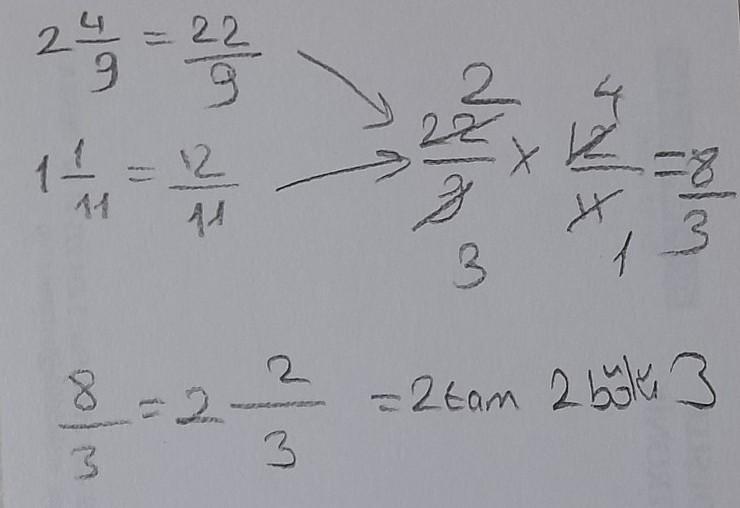 2 4/9 = 22/9
1 1/11 = 12/11
22/9 x 12/11 = 8/3
2 4
3 1
8/3 = 2 2/3 = 2 tam 2 bölü 3